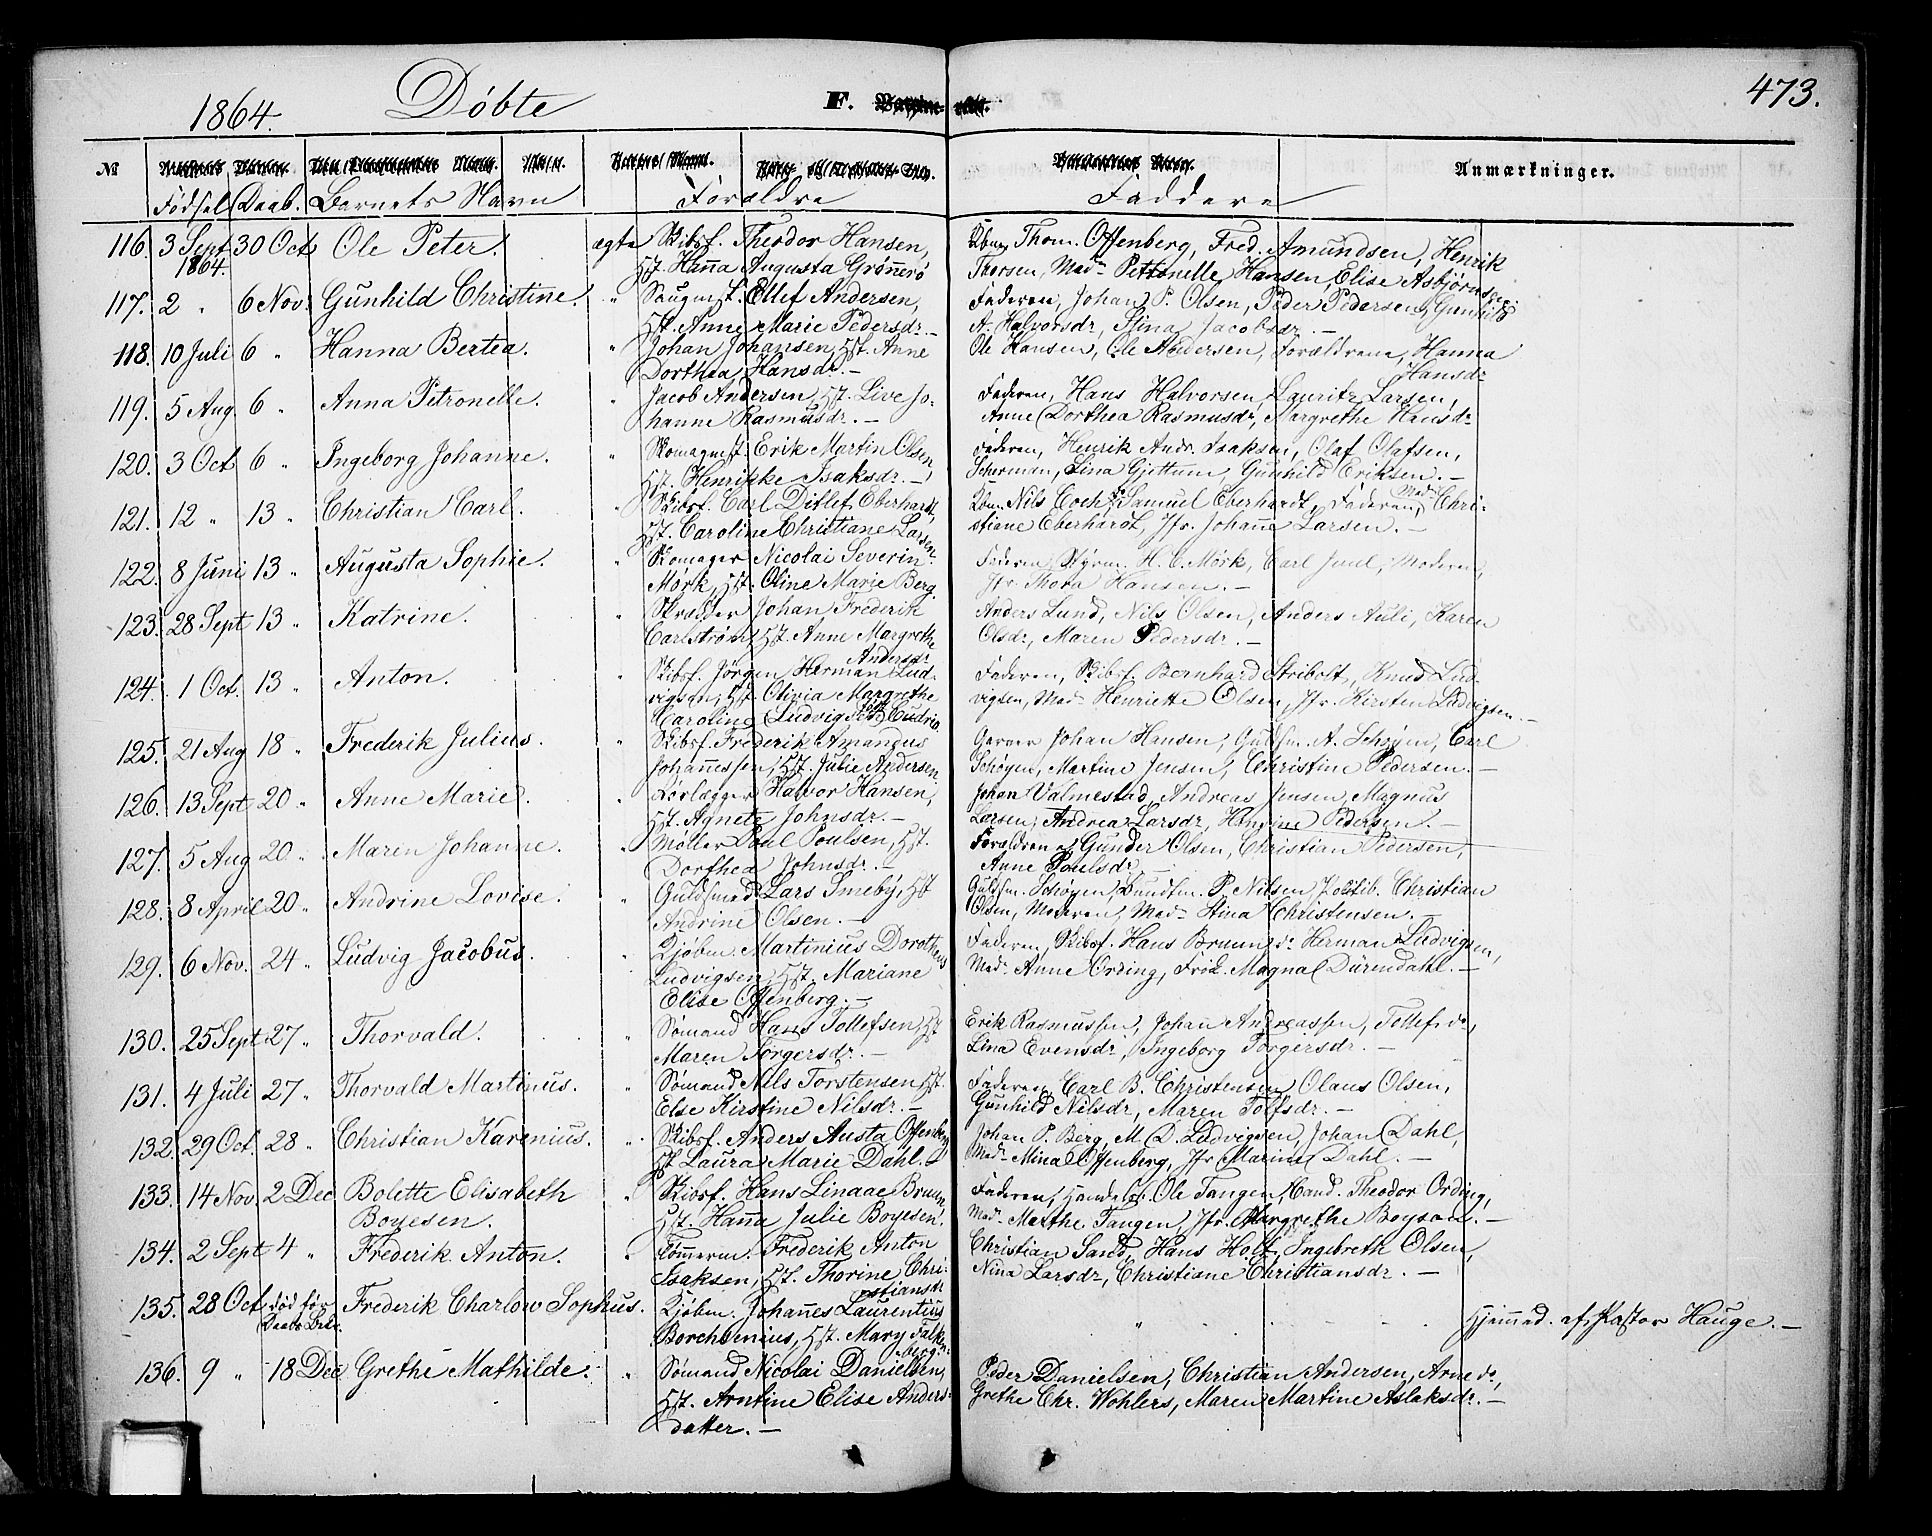 473.
1864. Døbte F.
№ Anmærkninger.
Fødsel Daab. Barnets Navn Forældre Faddere
116. 3 Sept 1864. 30 Oct Ole Peter. ægte Skibsf. Theodor Hansen, Thom. Offenberg, Fred. Amundsen, Henrik
Hst. Hanna Augusta Grønnerø Thorsen, Mad- Pettonelle Hansen, Elise Asbjørnsen
117. 2 " 6 Nov. Gunhild Christine. " Saugmst. Ellef Andersen, Faderen, Johan P. Olsen, Peder Pedersen, Gunhild
Hst. Anne Marie Pedersdr. — A. Halvorsdr, Stina Jacobsdr. —
118. 10 Juli 6 " Hanna Bertea. " Johan Johansen, Hst. Anne Ole Hansen, Ole Andersen, Forældrene, Hanna
Dorthea Hansdr. — Hansdr
119. 5 Aug 6 " Anna Petronelle. " Jacob Andersen, Hst. Live Jo- Faderen, Hans Halvorsen, Lauritz Larsen,
hanne Rasmusdr. — Anne Dorthea Rasmusdr, Margrethe Hansdr
120. 3 Oct 6 " Ingeborg Johanne. " Skomagmst. Erik Martin Olsen, Faderen, Henrik Andr. Isaksen, Olaf Olafsen,
Hst. Henrikke Isaksdr. — Scherman, Lina Gjettum, Gunhild Eriksen. —
121. 12 " 13 " Christian Carl. " Skibsf. Carl Ditlef Eberhardt, Nils Coch, Samuel Eberhardt, Faderen, Mad- Chri-
Hst. Caroline Christiane Larsen. stiane Eberhardt, Jfr. Johanne Larsen. —
122. 8 Juni 13 " Augusta Sophie. " Skomager Nicolai Severin Faderen, Styrm. H. C. Mörk, Carl Juul, Moderen,
Mørk, Hst. Oline Marie Berg Jfr. Thora Hansen. —
123. 28 Sept 13 " Katrine. " Skrædder Johan Frederik Anders Lund, Nils Olsen, Anders Auli, Karen
Carlstrøm, Hst. Anne Margrethe Andersdr Olsdr, Maren Pedersdr. —
124. 1 Oct. 13 " Anton. " Skibsf. Jørgen Herman Lud- Faderen, Skibsf. Bernhard Stribolt, Knud Lud-
vigsen, Hst. Olivia Margrethe vigsen, Mad- Henriette Olsen, Jfr. Kirsten Ludvigsen. —
Caroline Ludvigsen
125. 21 Aug 18 " Frederik Julius. " Skibsf. Frederik Amandus Garver Johan Hansen, Guldsm. A. Schøyen, Carl
Johannessen, Hst. Julie Andersen Schøyen, Martine Jensen, Christine Pedersen. —
126. 13 Sept 20 " Anne Marie. " Halvor Hansen, Johan Valmestad, Andreas Jensen, Magnus
Hst. Agnete Johnsdr. — Larsen, Andrea Larsdr, Pedersen. —
127. 5 Aug 20 " Maren Johanne. " Møller Poul Poulsen, Hst. Forældrene, Gunder Olsen, Christian Pedersen,
Dorthea Johnsdr. — Anne Poulsdr.
128. 8 April 20 " Andrine Lovise. " Guldsmed Lars Smeby, Hst Guldsm. Schøyen, Bundtm. P. Nilsen, Politib. Christian
Andrine Olsen. — Olsen, Moderen, Mad- Stina Christensen. —
129. 6 Nov. 24 " Ludvig Jacobus. " Kjøbm. Martinius Dorotheus Faderen, Skibsf. Hans Bruun, do Herman Ludvigsen,
Ludvigsen, Hst. Mariane Mad- Anne Ording, Frøk. Magna Dürendahl. —
Elise Offenberg. —
130. 25 Sept 27 " Thorvald. " Sømand Hans Tollefsen, Hst Erik Rasmussen, Johan Andreassen, Tollef do,
Maren Torgersdr. — Lina Evensdr, Ingeborg Torgersdr. —
131. 4 Juli 27 " Thorvald Martinus. " Sømand Nils Torstensen, Hst. Faderen, Carl B. Christensen, Olaus Olsen,
Else Kirstine Nilsdr. — Gunhild Nilsdr, Maren Tolfsdr. —
132. 29 Oct. 28 " Christian Karenius. " Skibsf. Anders Austa Offenberg Johan P. Berg, M. D. Ludvigsen, Johan Dahl,
Hst Laura Marie Dahl. Mad- Mina Offenberg, Jfr Marine Dahl. —
133. 14 Nov. 2 Dec Bolette Elisabeth " Skibsf. Hans Linaae Bruun, Faderen, Handelsf. Ole Tangen, Cand. Theodor Ording,
Boyesen. Hst. Hanna Julie Boyesen. Mad- Marthe Tangen, Jfr. Margrethe Boysen. —
134. 2 Sept 4 " Frederik Anton. " Tømmerm. Frederik Anton Christian Sand, Hans Holt, Ingebreth Olsen,
Isaksen, Hst. Thorine Chri- Nina Larsdr, Christiane Christiansdr. —
stiansdr
135. 28 Oct død før Frederik Charlow Sophus. Kjøbm. Johannes Laurentius " Hjemmed. af Pastor Hauge. —
Borchsenius, Hst. Mary Falken-
berg.
136. 9 " 18 Dec Grethe Mathilde. " Sømand Nicolai Danielsen, Peder Danielsen, Christian Andersen, Arne do,
Hst. Arntine Elise Anders- Grethe Chr. Wohlers, Maren Martine Aslaksdr. —
datter. —